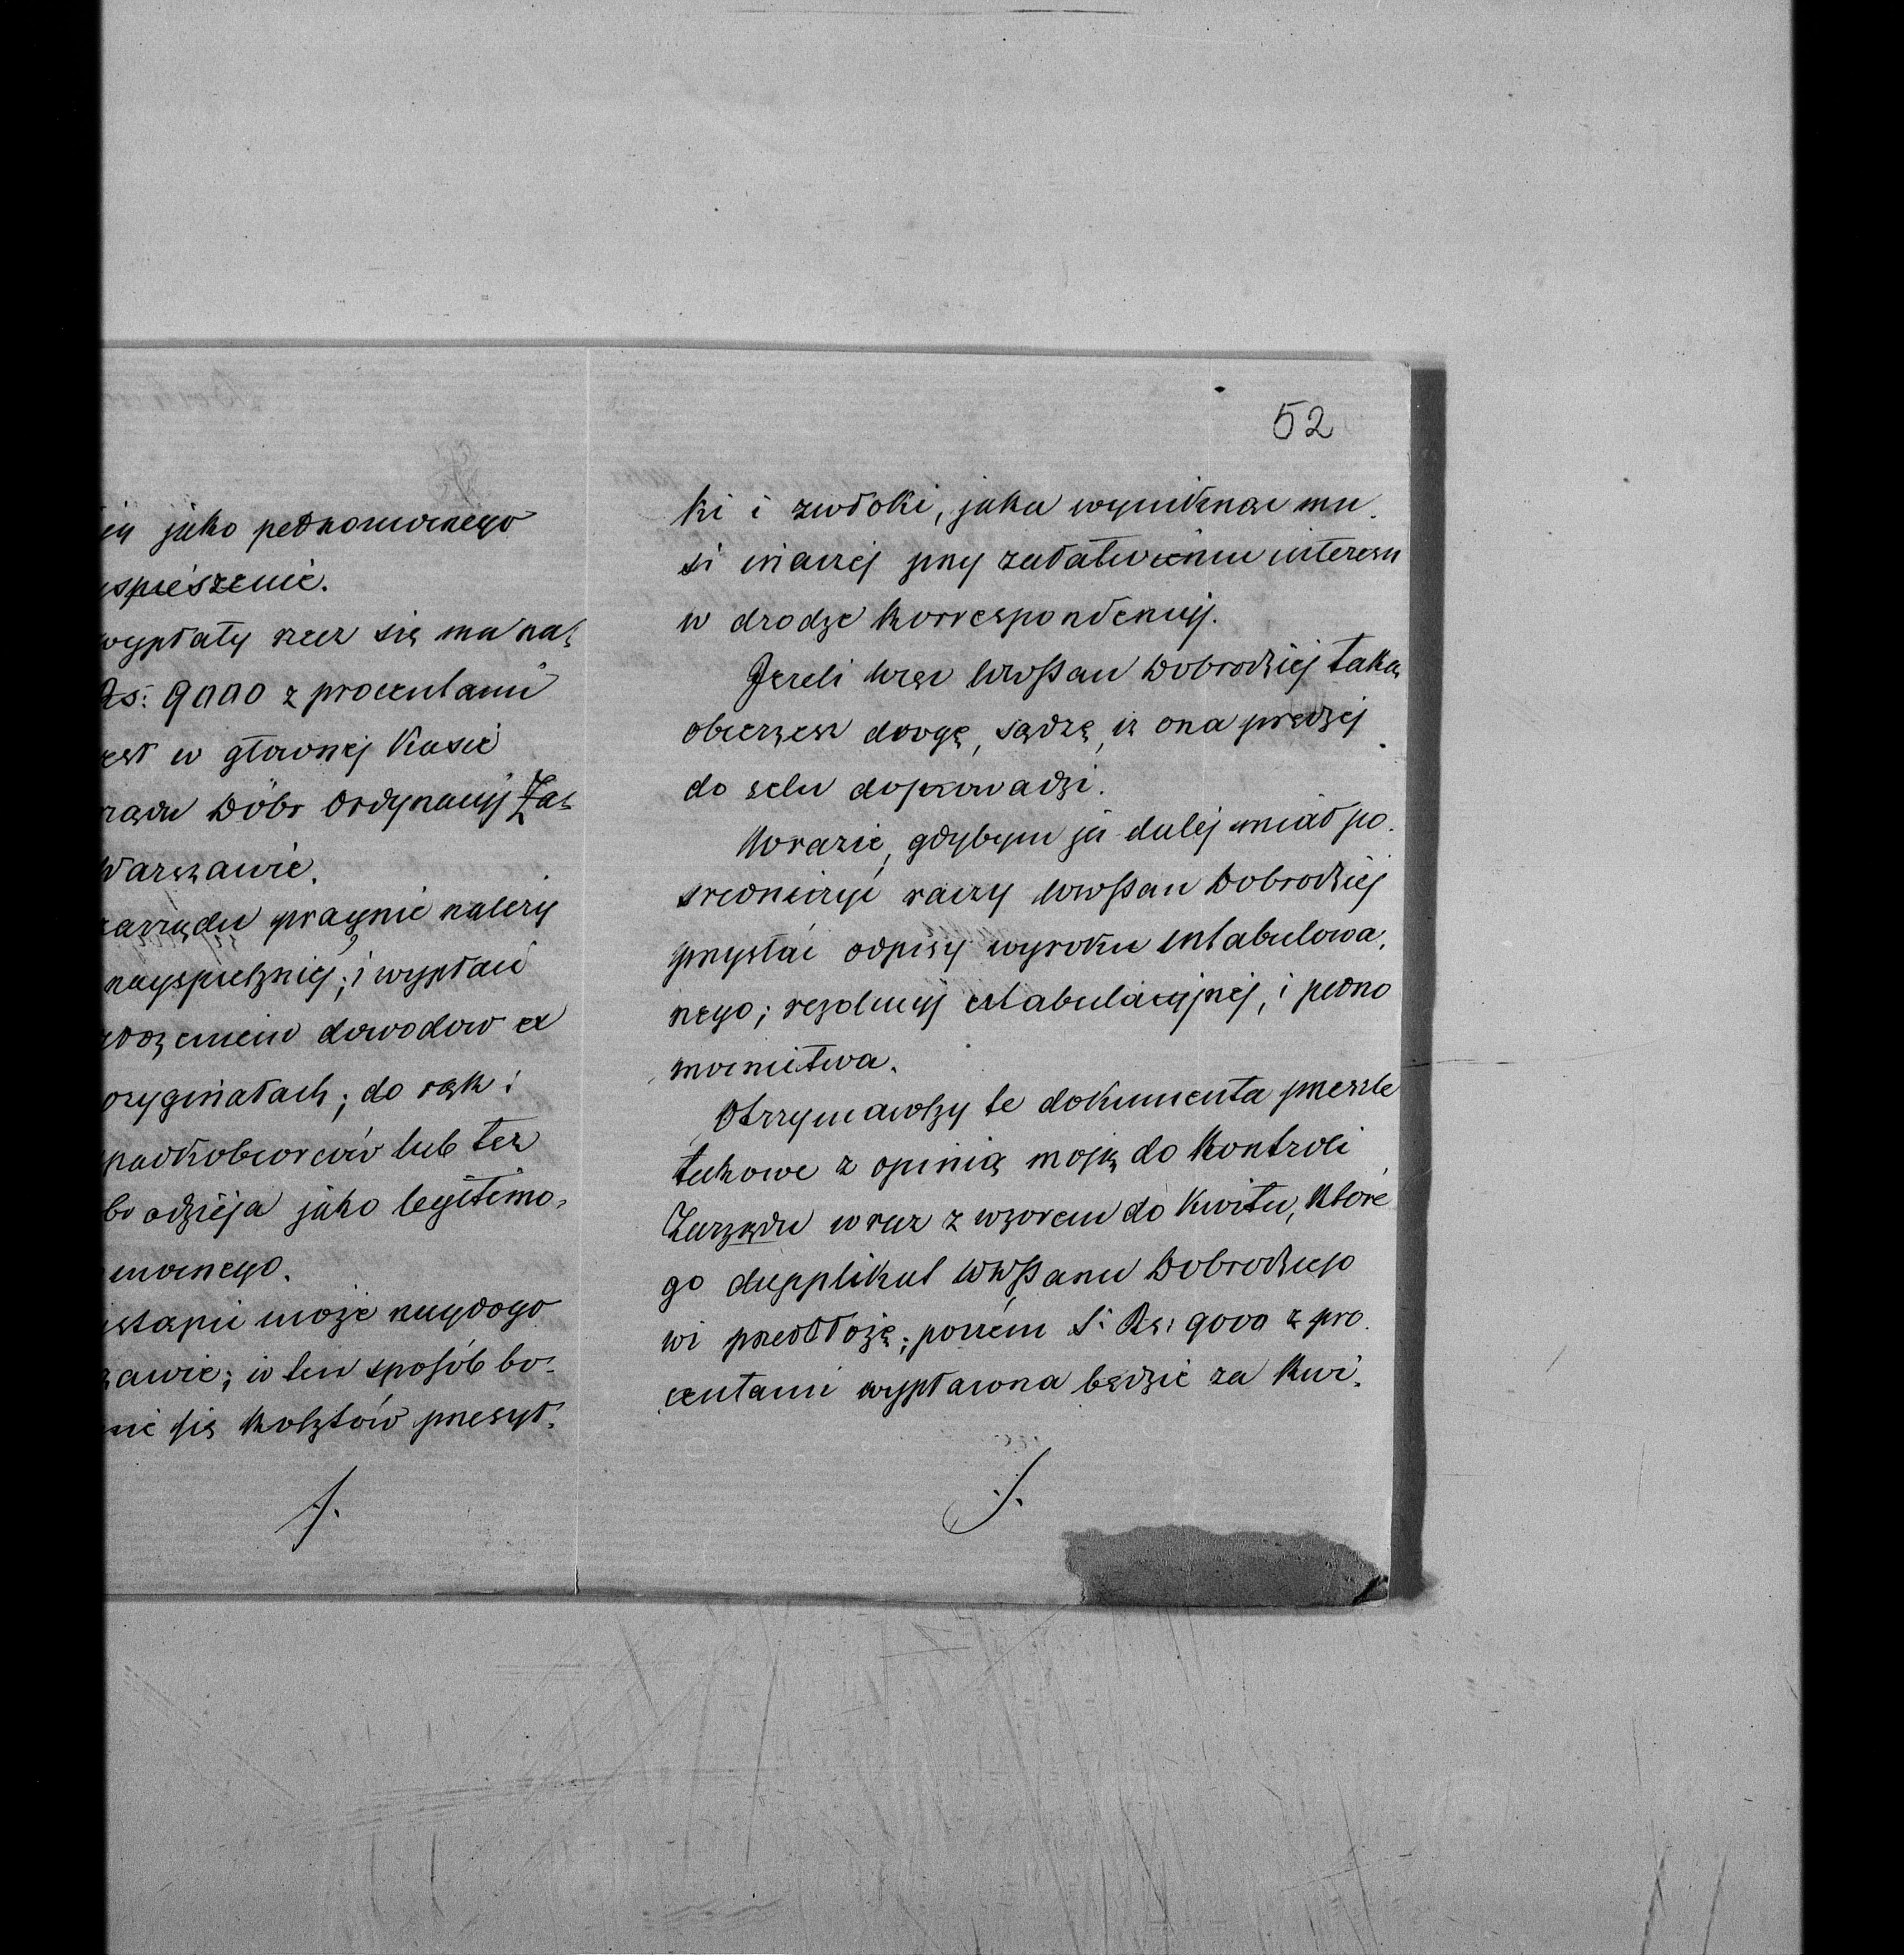 jako pełnomocnego
spieszenie.
wypłaty rzecz się ma na„
Rs: 9000 z procentami
jest w głownej Kasie
rządu Dóbr Ordynacyj Za„
Warszawie.
zarządu pragnie należy
nayspieszniej; i wypłaci
złożeniem dowodow ex
oryginałach; do rąk:
spadkobiorców lub też
brodzieja jako legitimo„
mocnego.
nastąpić może naydogo
szawie; w ten sposób bo„
nie się kosztów przesył„
52
ki i zwłoki, jaka wyniknąć mu„
si inaczej przy załatwieniu interesu
w drodze korrespondencyj.
Jezeli więc WWPan Dobrodziej taką
obierzesz drogę, sądzę, iz ona prędzej
do celu doprowadzi.
W razie, gdybym ja dalej miał po„
sredniczyć raczy WWPan Dobrodziej
przysłać odpisy wyroku intabulowa„
nego; rezolucyj extabulacyjnej, i pełno
mocnictwa.
Otrzymawszy te dokumenta przeszle
takowe z opinią moją do Kontroli
Zarządu wraz z wzorem do Kwitu, które
go dupplikat WWPanu Dobrodziejo
wi przedłożę; poczém S: Rs: 9000 z pro„
centami wypłacona będzie za Kwi„